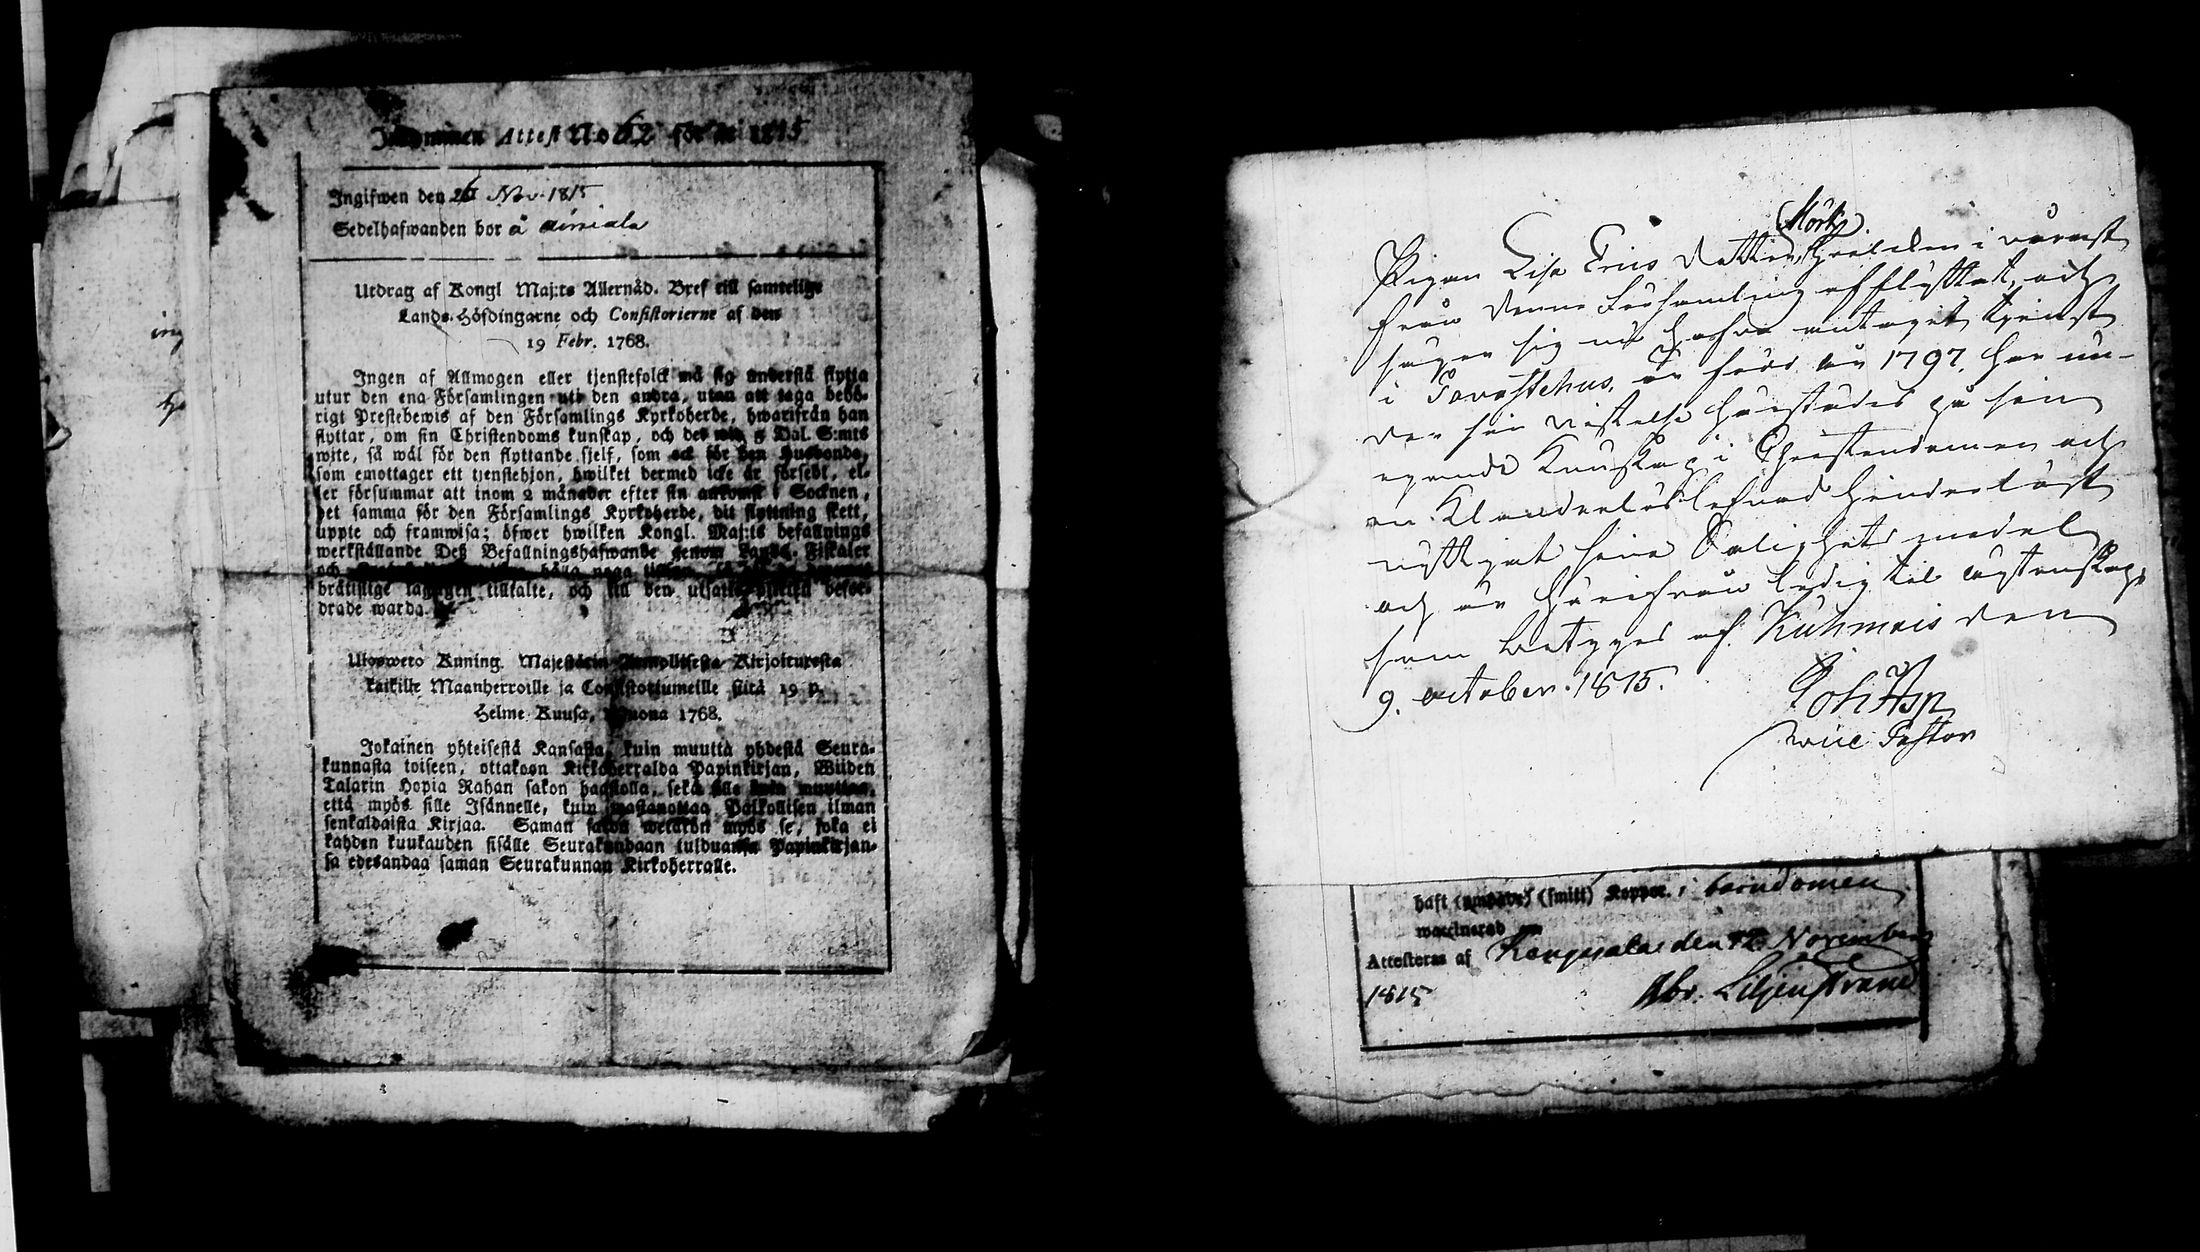 Inkommen Attest No 62 för år 1815
Ingifwen den 26 Nov. 1815
Sedelhafwanden bor å
Utdrag af Kongl Maj:ts Allernåd. Bref till samtelige
Lands-Höfdingarne och Consistorierne af den
19 Febr. 1768.
Ingen af Allmogen eller tjenstefolck må sig understå flytta
utur den ena Församlingen uti den andra, utan att taga behö-
rigt Prestebewis af den Församlings Kyrkoherde, hwarifrån han
flyttar, om sin Christendoms kunskap, och det wid 5 Dal. S:mts
wite, så wäl för den flyttande sjelf, som ock för den Husbonde,
som emottager ett tjenstehjon, hwilket dermed icke är försedt, el-
ler försummar att inom 2 månader efter sin ankomst i Socknen,
det samma för den Församlings Kyrkoherde, dit flyttning skett,
uppte och framwisa; öfwer hwilken Kongl. Maj:ts befallnings
werkställande Deß Befallningshafwande genom Lands-Fiskaler
och
brätsllige tillfalte, och till den utsatte
drade warda.
Uloswero Kuning. Majestätin Armollisesta Kirjoituxesta
kaikille Maanherroille ja Consistoriumeille siitä 19 p.
Helme Kuusa, Wuona 1768.
Jokainen yhteisestä Kansasta, kuin muutta yhdestä Seura-
kunnasta toiseen, ottakoon Kirkoherralda Papinkirjan, Wiiden
Talarin Hopia Rahan sakon haastolla, sekä sille kuin muuttaa,
että myös sille Isännelle, kuin wastanottaa Palkollisen ilman
senkaldaista Kirjaa. Saman sakon wetäkön myös se, joka ei
kahden kuukauden sisälle Seurakundaan tulduansa Papinkirjan-
sa edesandaa saman Seurakunnan Kirkoherralle.
Mörk
Pigan Lisa Eries Dotter, i wårast
från denna Församling afflyttat, och
säger sig nu hafva antagit tjenst
i Tavastehus, är född år 1797, har un-
der sin vistelse härstädes på sin
egande Kunskap i Christendomen och
en Klanderlös lefnad hinderlöst
nyttjat sine Salighets medel
och är härifrån ledig til ägtenskap,
som betyges af Kuhmois den
9. october. 1815.
Joh Asp
vice Pastor
haft (smitt) Koppor. i barndomen
waccinerad
Attesteras af Kangasala den 12 November
1815 Abr. Liljenstrand